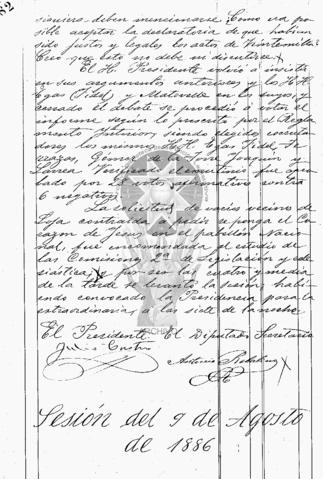 siquiera deben mencionarse. ¿Como era po-
sible aceptar la declaratoria de que habían
sido justos y legales los actos de Veintemilla?
Creo que esto no debe ni discutirse.
El H. Presidente volvió a insistir
en sus argumentos anteriores y los H. H.
Egas Fidel y Matovelle en los suyos, y
cerrado el debate se procedió a votar el
informe según lo prescrito por el Regla-
mento Interior, siendo elegidos escruta-
dores los mismos H. H. Egas Fidel,
Gómez de la Torre Joaquin y
Verificado el escrutinio fue apro-
bado por votos afirmativos contra
6 negativos.
La solicitud de varios vecinos de
Loja contraída a pedir se ponga el Co-
razon de Jesus en el pabellón Nacio-
nal, fue encomendada al estudio de
las Comisiones 2ª de Legislación y ecle-
siástica, y por ser las cuatro y media
de la tarde se levantó la sesión, habi-
endo convocado la Presidencia para la
extraordinaria, a las siete de la noche.
El Presidente El Diputado Secretario
Julio Castro
Antonio
Sesión del 9 de Agosto
de 1886